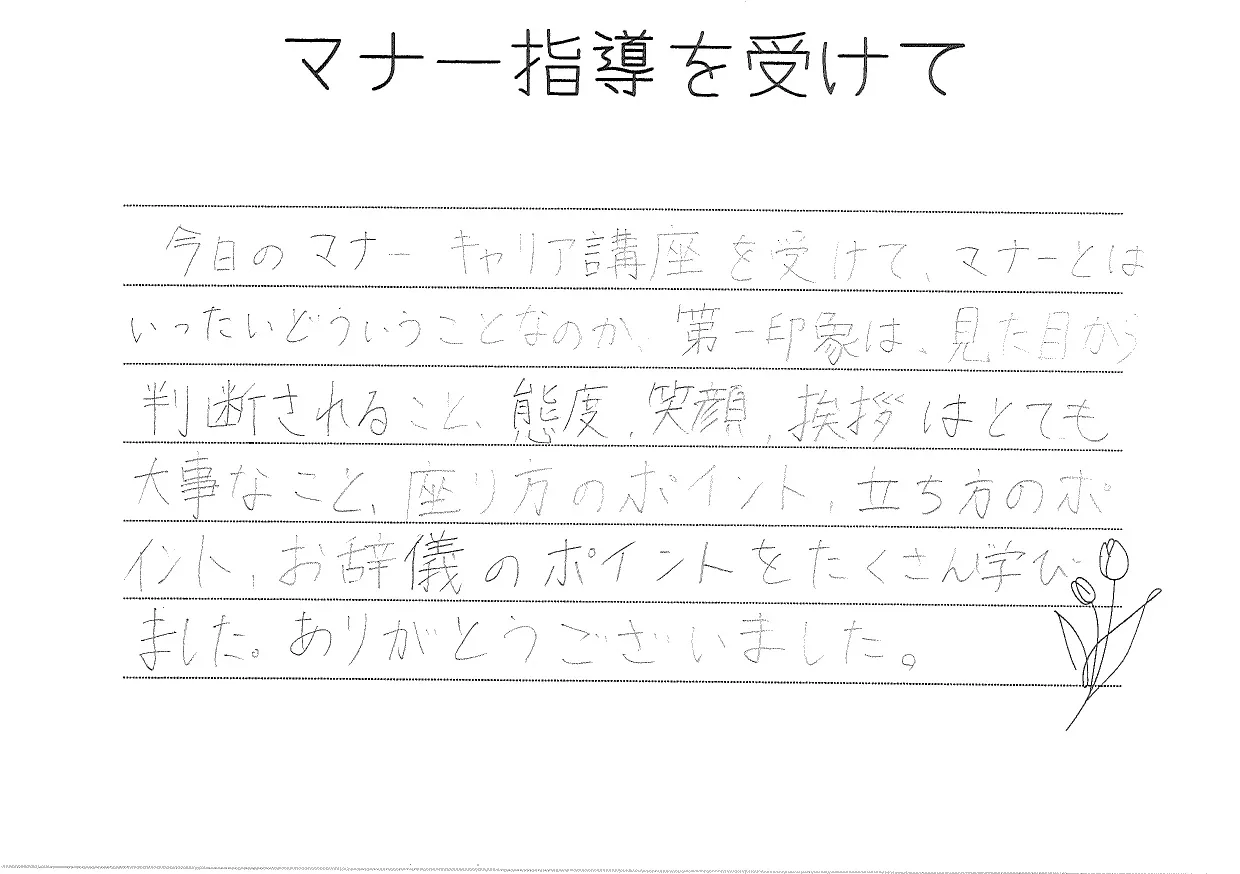 マナー指導を受けて
今日のマナーキャリア講座を受けて、マナーとは
いったいどういうことなのか、第一印象は、見た目から
判断されること、態度、笑顔、挨拶はとても
大事なこと、座り方のポイント、立ち方のポ
イント、お辞儀のポイントをたくさん学び
ました。ありがとうございました。